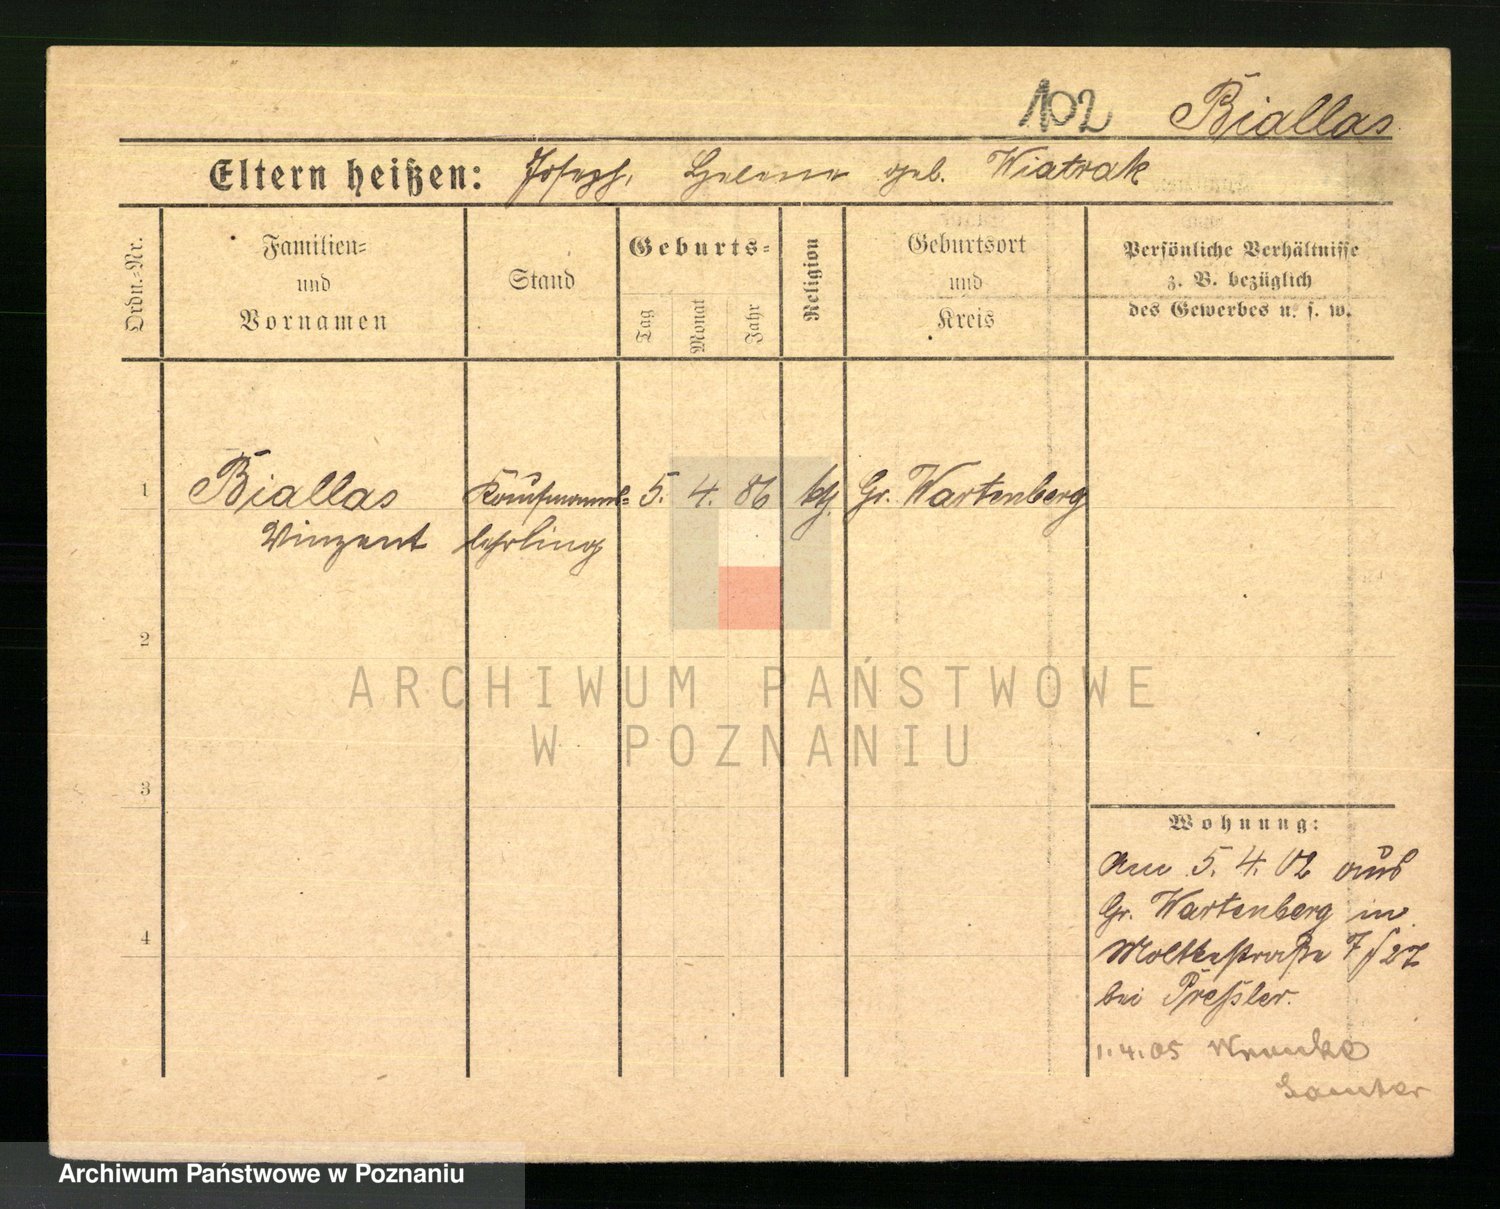 102 Biallas
Eltern heißen: Joseph, Helene geb. Wiatrak
Ordn.-Nr.
Familien-
und
Vornamen
Stand
Geburts-
Tag
Monat
Jahr
Religion
Geburtsort
und
Kreis
Persönliche Verhältnisse
z. B. bezüglich
des Gewerbes u. s. w.
1 Biallas Kaufmanns- 5. 4. 86 kth. Gr. Wartenberg
Vinzent lehrling
2
3
4
Wohnung:
Am 5. 4. 02 aus
Gr. Wartenberg in
Moltkestraße 27
bei Preßler.
1.4.05
Samter
ARCHIWUM PAŃSTWOWE
W POZNANIU
Archiwum Państwowe w Poznaniu